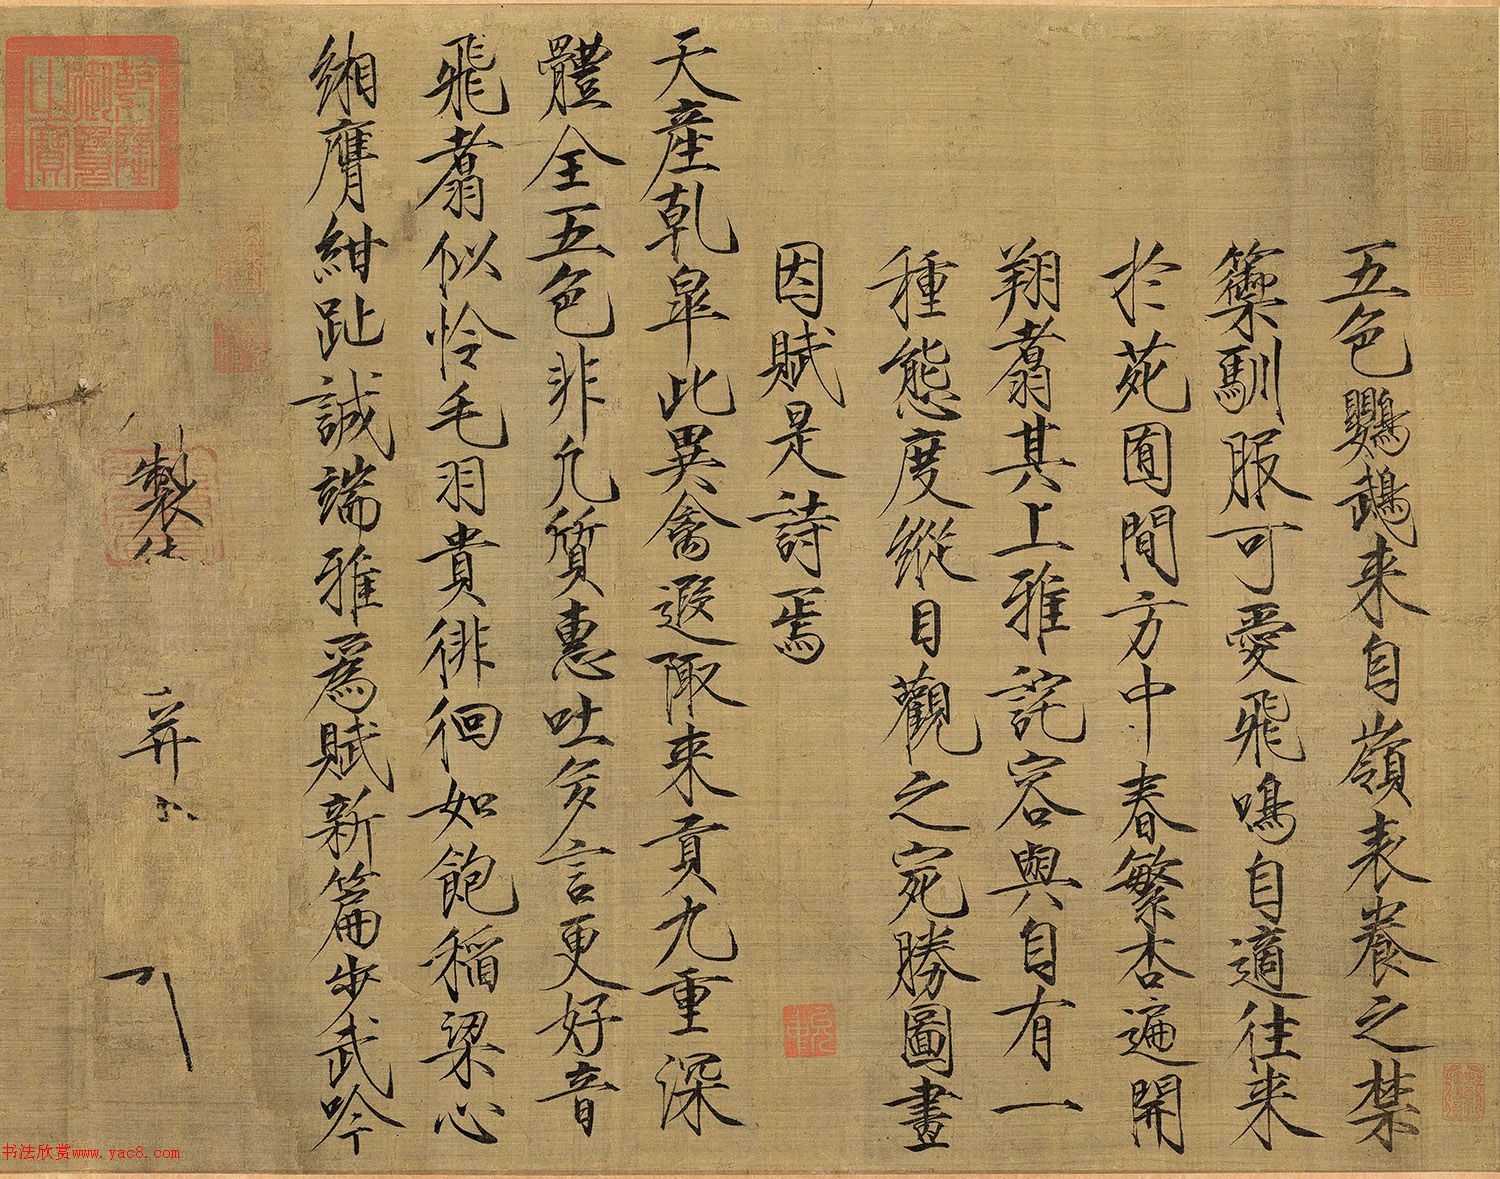 五色鸚鵡来自嶺表養之禁
籞馴服可愛飛鳴自適往来
於苑囿間方中春繁杏遍開
翔翥其上雅詫容與自有一
種態度縱目觀之宛勝圖畫
因賦是詩焉
天産乾皐此異禽遐陬来貢九重深
體全五色非凡質惠吐多言更好音
飛翥似怜毛羽貴徘徊如飽稻粱心
緗膺紺趾誠端雅為賦新篇步武吟
製
乾隆御覽之寶
书法欣赏www.yac8.com